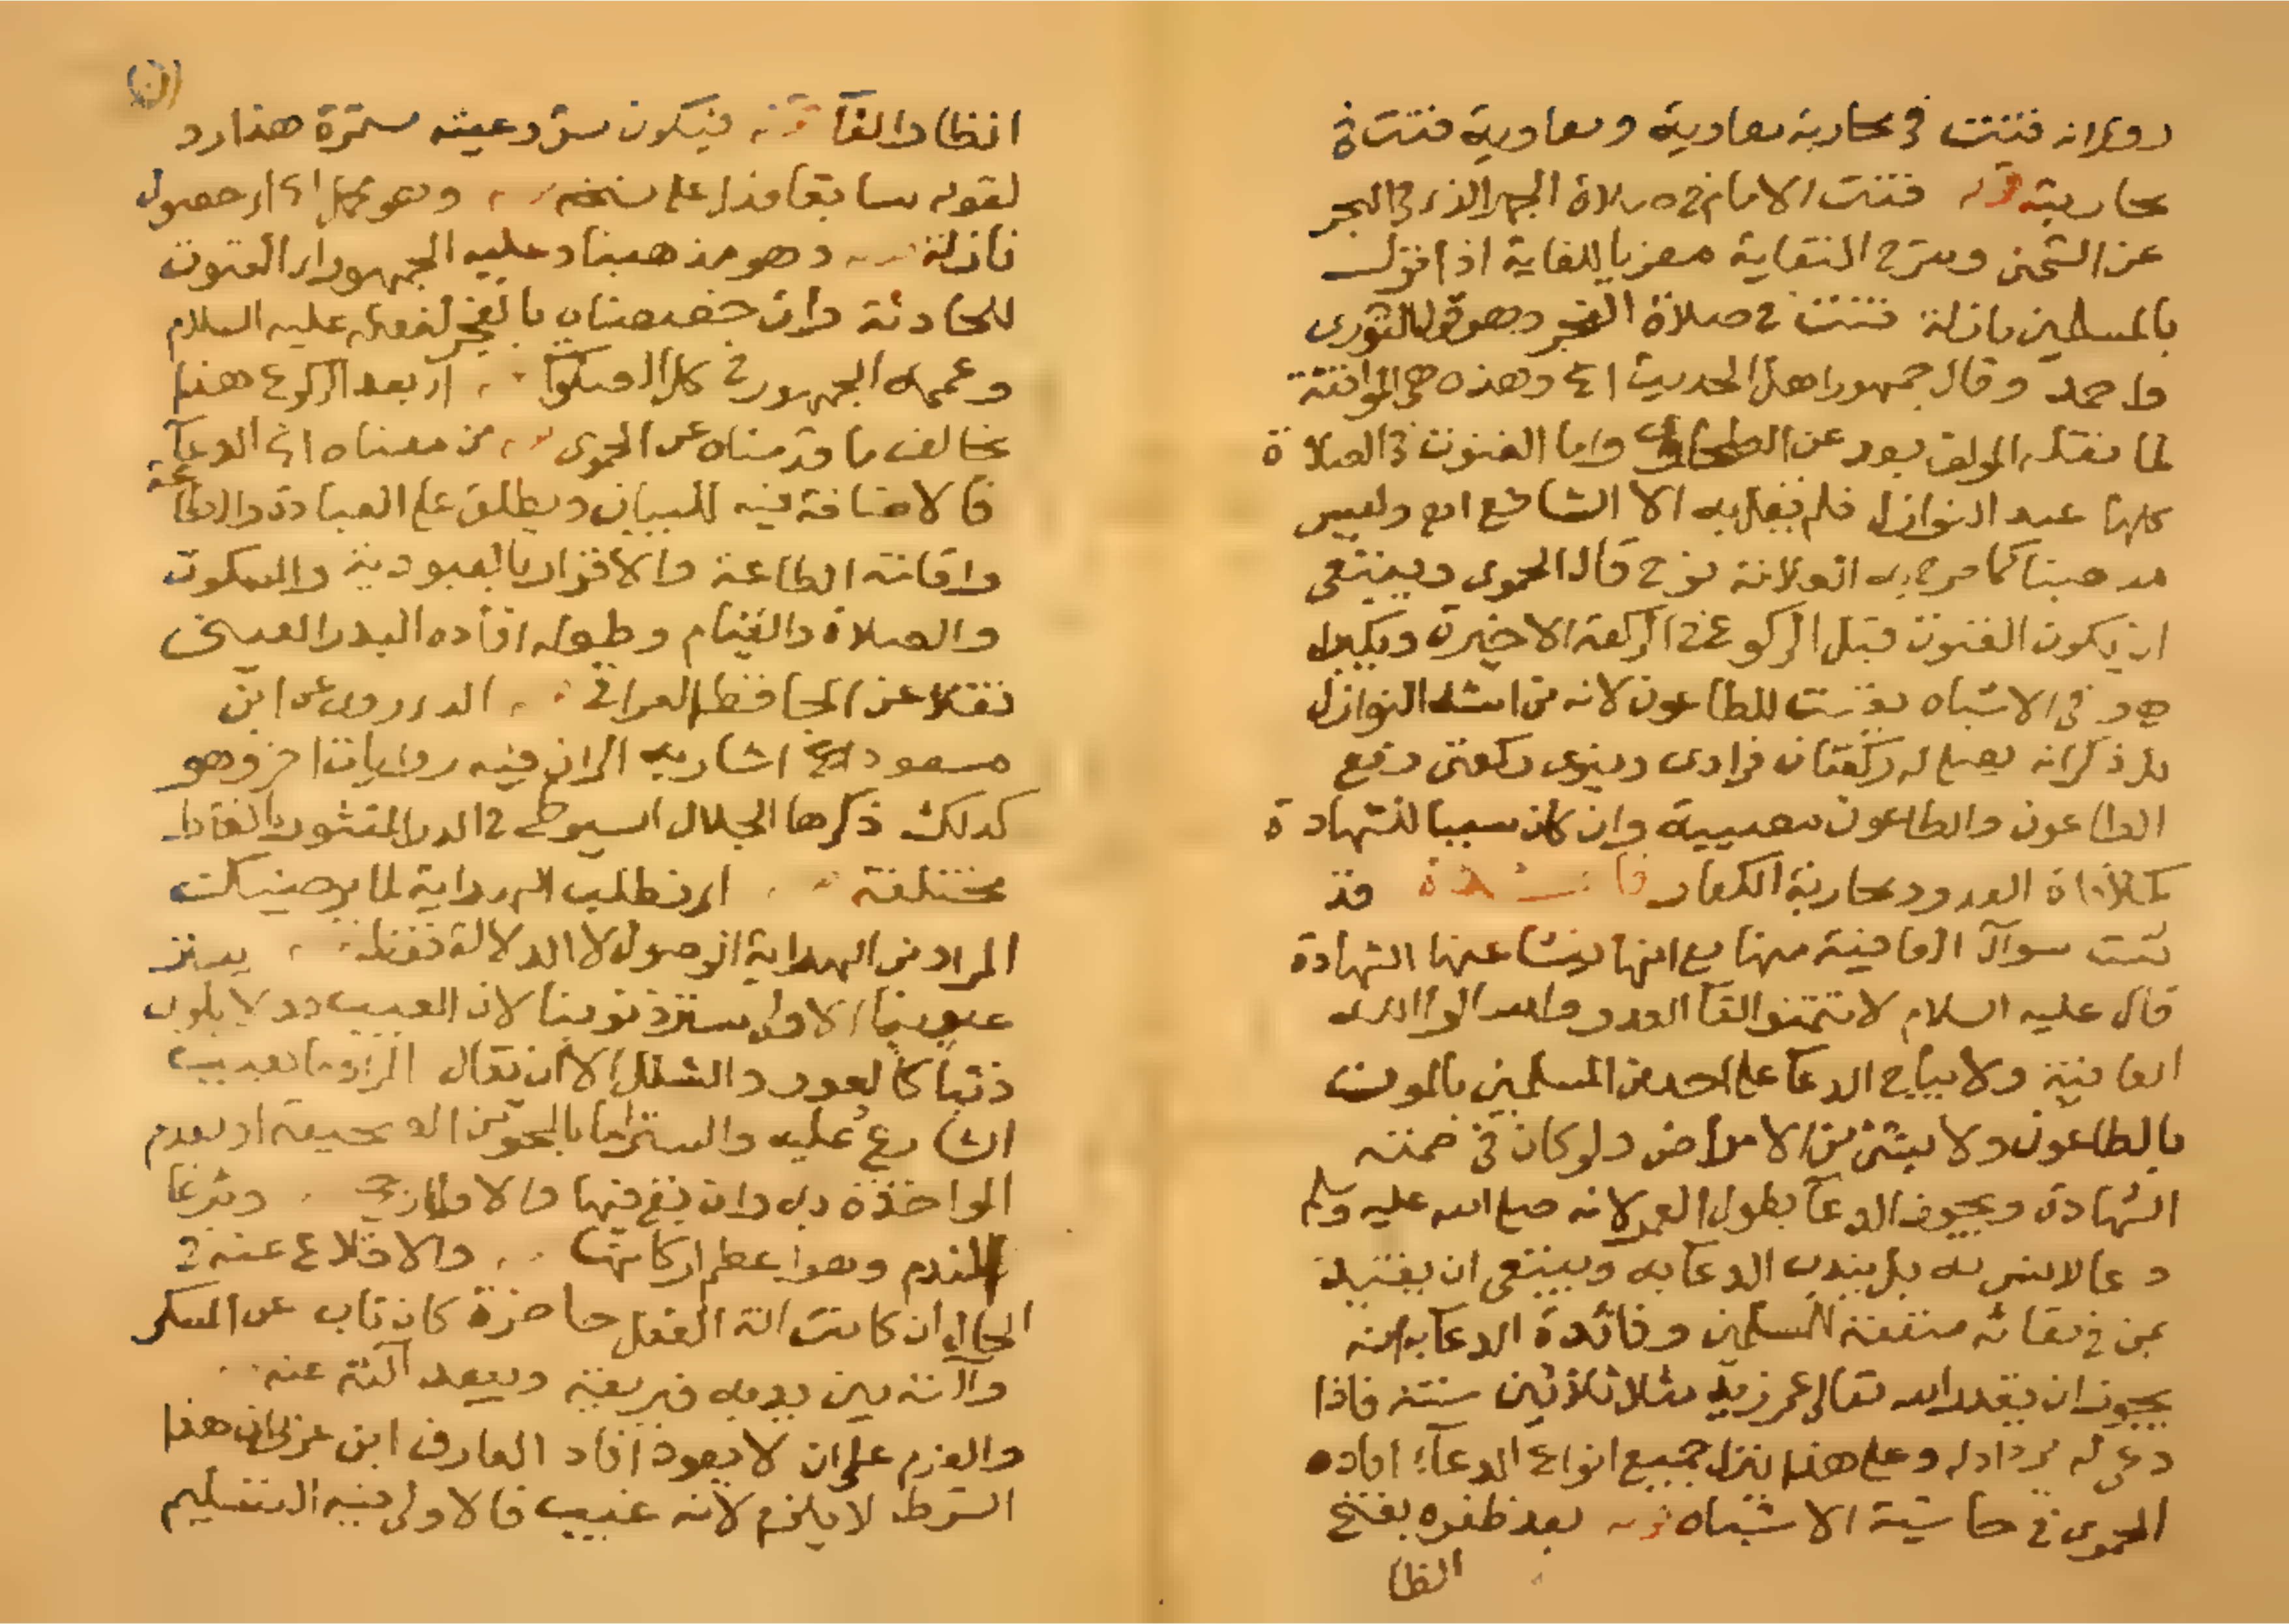 روى انه قنت في محاربة معاوية ومعاوية قنت في
محاربته قوله قنت الامام في صلاة الجهر الذي في البحر
عن الشمني وشرح النقاية معزيا للغاية اذا نزلت
بالمسلمين نازلة قنت في صلاة الفجر وهو قول الثوري
واحمد وقال جمهور اهل الحديث اه وهذه هي الموافقة
لما نقله المولف بعد عن الطحاوي واما القنوت في الصلاة
كلها عند النوازل فلم يقل به الا الشافعي اه وليس
مذهبنا كما صرح به العلامة نوح قال الحموي وينبغي
ان يكون القنوت قبل الركوع في الركعة الاخيرة ويكبر له
في الاشباه يقنت للطاعون لانه من اشد النوازل
بل ذكر انه يصلي له ركعتان فرادى وينوي ركعتي رفع
الطاعون والطاعون مصيبة وان كان سببا للشهادة
كملاقاة العدو ومحاربة الكفار فائدة قد
ثبت سوال العافية منها مع انها ينشا عنها الشهادة
قال عليه السلام لا تتمنوا لقا العدو واسالوا الله
العافية ولا يباح الدعا على احد من المسلمين بالموت
بالطاعون ولا بشئ من الامراض ولو كان في ضمنه
الشهادة ويجوز الدعا بطول العمر لانه صلى الله عليه وسلم
دعا لانس به بل يندب الدعا به وينبغي ان يقيد
بمن في بقائه منفعة للمسلمين وفائدة الدعا به انه
يجوز ان يقدر الله تعالى عمر زيد مثلا ثلاثين سنة فاذا
دعي له يزداد له وعلى هذا ينزل جميع انواع الدعاء افاده
الحموي في حاشية الاشباه قوله بعد ظفره بفتح
الظا
الظا والفآ قوله فيكون شرعيته مستمرة هذا رد
لقوله سابقا فذا على نسخه وهو محمل اي حصول
نازلة وهو مذهبنا وعليه الجمهور اي القنوت
للحادثة وان خصصناه بالفجر لفعله عليه السلام
وعممه الجمهور في كل الصلوات اي بعد الركوع هذا
يخالف ما قدمناه عن الحموي من معناه اي الدعآ
فالاضافة فيه للبيان ويطلق على العبادة والطاعة
واقامة الطاعة والاقرار بالعبودية والسكوت
والصلاة والقيام وطوله افاده البدر العيني
نقلا عن الحافظ العراقي الدر روى عن ابن
مسعود اشار به الى ان فيه روايات اخر وهو
كذلك ذكرها الجلال السيوطي في الدر المنثور بالفاظ
مختلفة اي نطلب الهداية لما يرضيك
المراد من الهداية الوصول لا الدلالة فقط يستر
عيوبنا الاولى ستر ذنوبنا لان العيب قد لا يكون
ذنبا كالعور والشلل الا ان يقال المراد ما يعيب
الشارع عليه والستر اما بالمحو من الصحيفة او بعدم
المواخذة به وان بقي فيها والاول وشرعا
الندم وهو اعظم اركانها والاقلاع عنه في
الحال ان كانت الة الفعل حاضرة كان تاب عن السكر
وآلته بين يديه فيريقه ويبعد آلته عنه
والعزم على ان لا يعود افاد العارف ابن عربي ان هذا
الشرط لا يلزم لانه غيب فالاولى فيه التسليم